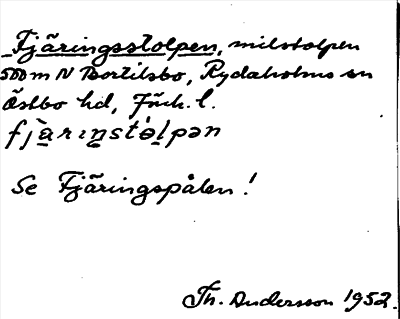 Fjäringsstolpen, milstolpen
500 m N Bortilsbo, Rydaholms sn
Östbo hd, Jönk. l.
fjàrıŋstólpən
Se Fjäringspålen!
Th. Andersson 1952.